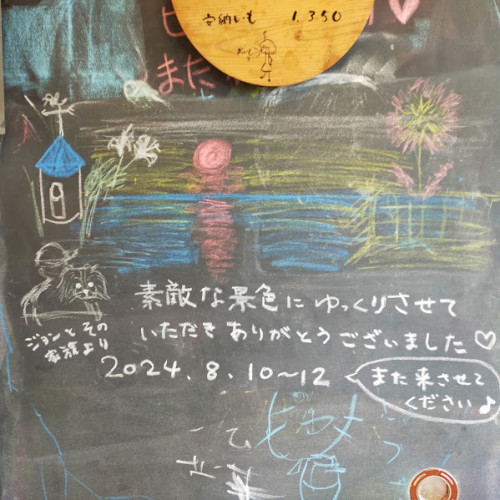 安納いも 1,350
また
素敵な景色にゆっくりさせて
いただきありがとうございました♡
ジョンとその
家族より
2024.8.10〜12
また来させて
ください♪